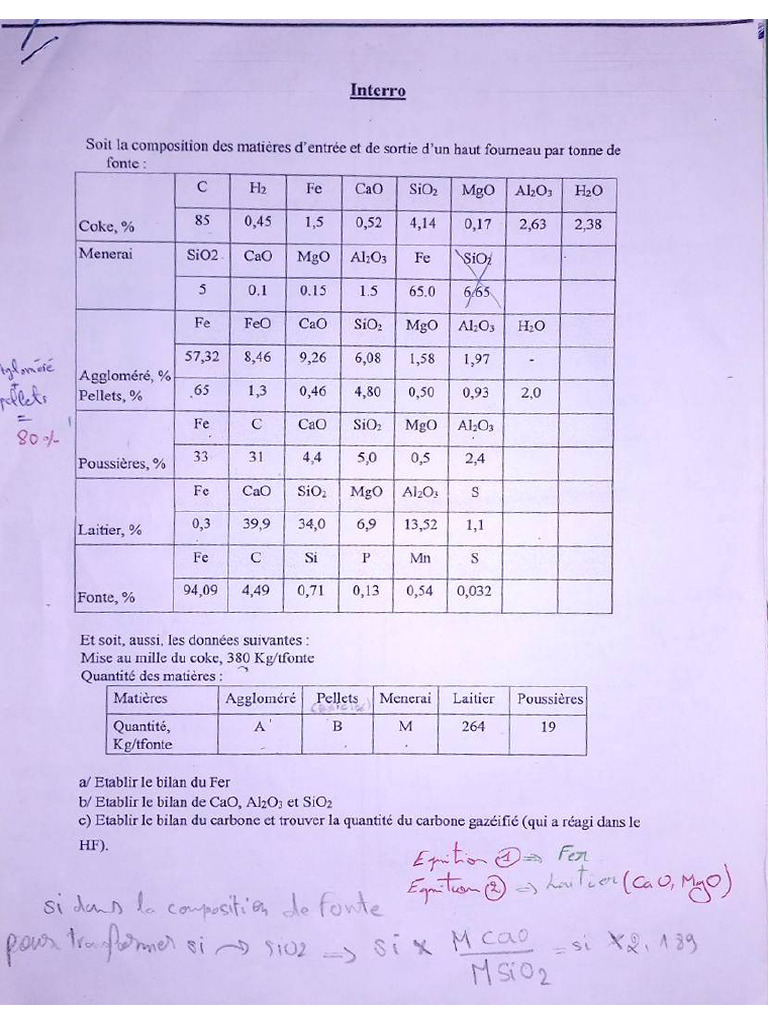 Interro
Soit la composition des matières d'entrée et de sortie d'un haut fourneau par tonne de
fonte :
C H₂ Fe CaO SiO₂ MgO Al₂O₃ H₂O
Coke, % 85 0,45 1,5 0,52 4,14 0,17 2,63 2,38
Menerai SiO2 CaO MgO Al₂O₃ Fe SiO₂
5 0.1 0.15 1.5 65.0 6,65
Fe FeO CaO SiO₂ MgO Al₂O₃ H₂O
Aggloméré, % 57,32 8,46 9,26 6,08 1,58 1,97 -
Pellets, % 65 1,3 0,46 4,80 0,50 0,93 2,0
Aggloméré
+
pellets
=
80%
Fe C CaO SiO₂ MgO Al₂O₃
Poussières, % 33 31 4,4 5,0 0,5 2,4
Fe CaO SiO₂ MgO Al₂O₃ S
Laitier, % 0,3 39,9 34,0 6,9 13,52 1,1
Fe C Si P Mn S
Fonte, % 94,09 4,49 0,71 0,13 0,54 0,032
Et soit, aussi, les données suivantes :
Mise au mille du coke, 380 Kg/tfonte
Quantité des matières :
Matières Aggloméré Pellets Menerai Laitier Poussières
Quantité, A B M 264 19
Kg/tfonte
a/ Etablir le bilan du Fer
b/ Etablir le bilan de CaO, Al₂O₃ et SiO₂
c) Etablir le bilan du carbone et trouver la quantité du carbone gazéifié (qui a réagi dans le
HF).
Eqution ① ⇒ Fer
Eqution ② ⇒ Laitier (CaO, MgO)
si dans la composition de fonte
pour transformer si → SiO2 ⇒ si × M CaO / M SiO₂ = si × 2,189